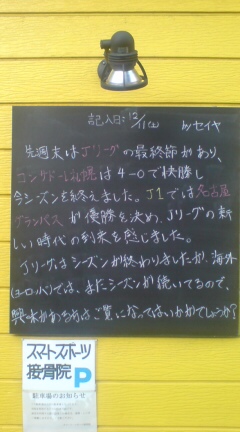 記入日:12/11(土) byセイヤ
先週末はJリーグの最終節があり、
コンサドーレ札幌は4-0で快勝し
今シーズンを終えました。J1では名古屋
グランパスが優勝を決め、Jリーグの新
しい時代の到来を感じました。
Jリーグはシーズンが終わりましたが、海外
(ヨーロッパ)では、まだシーズンが続いてるので、
興味がある方はご覧になってはいかがでしょうか?
スマートスポーツ
接骨院 P
駐車場のお知らせ